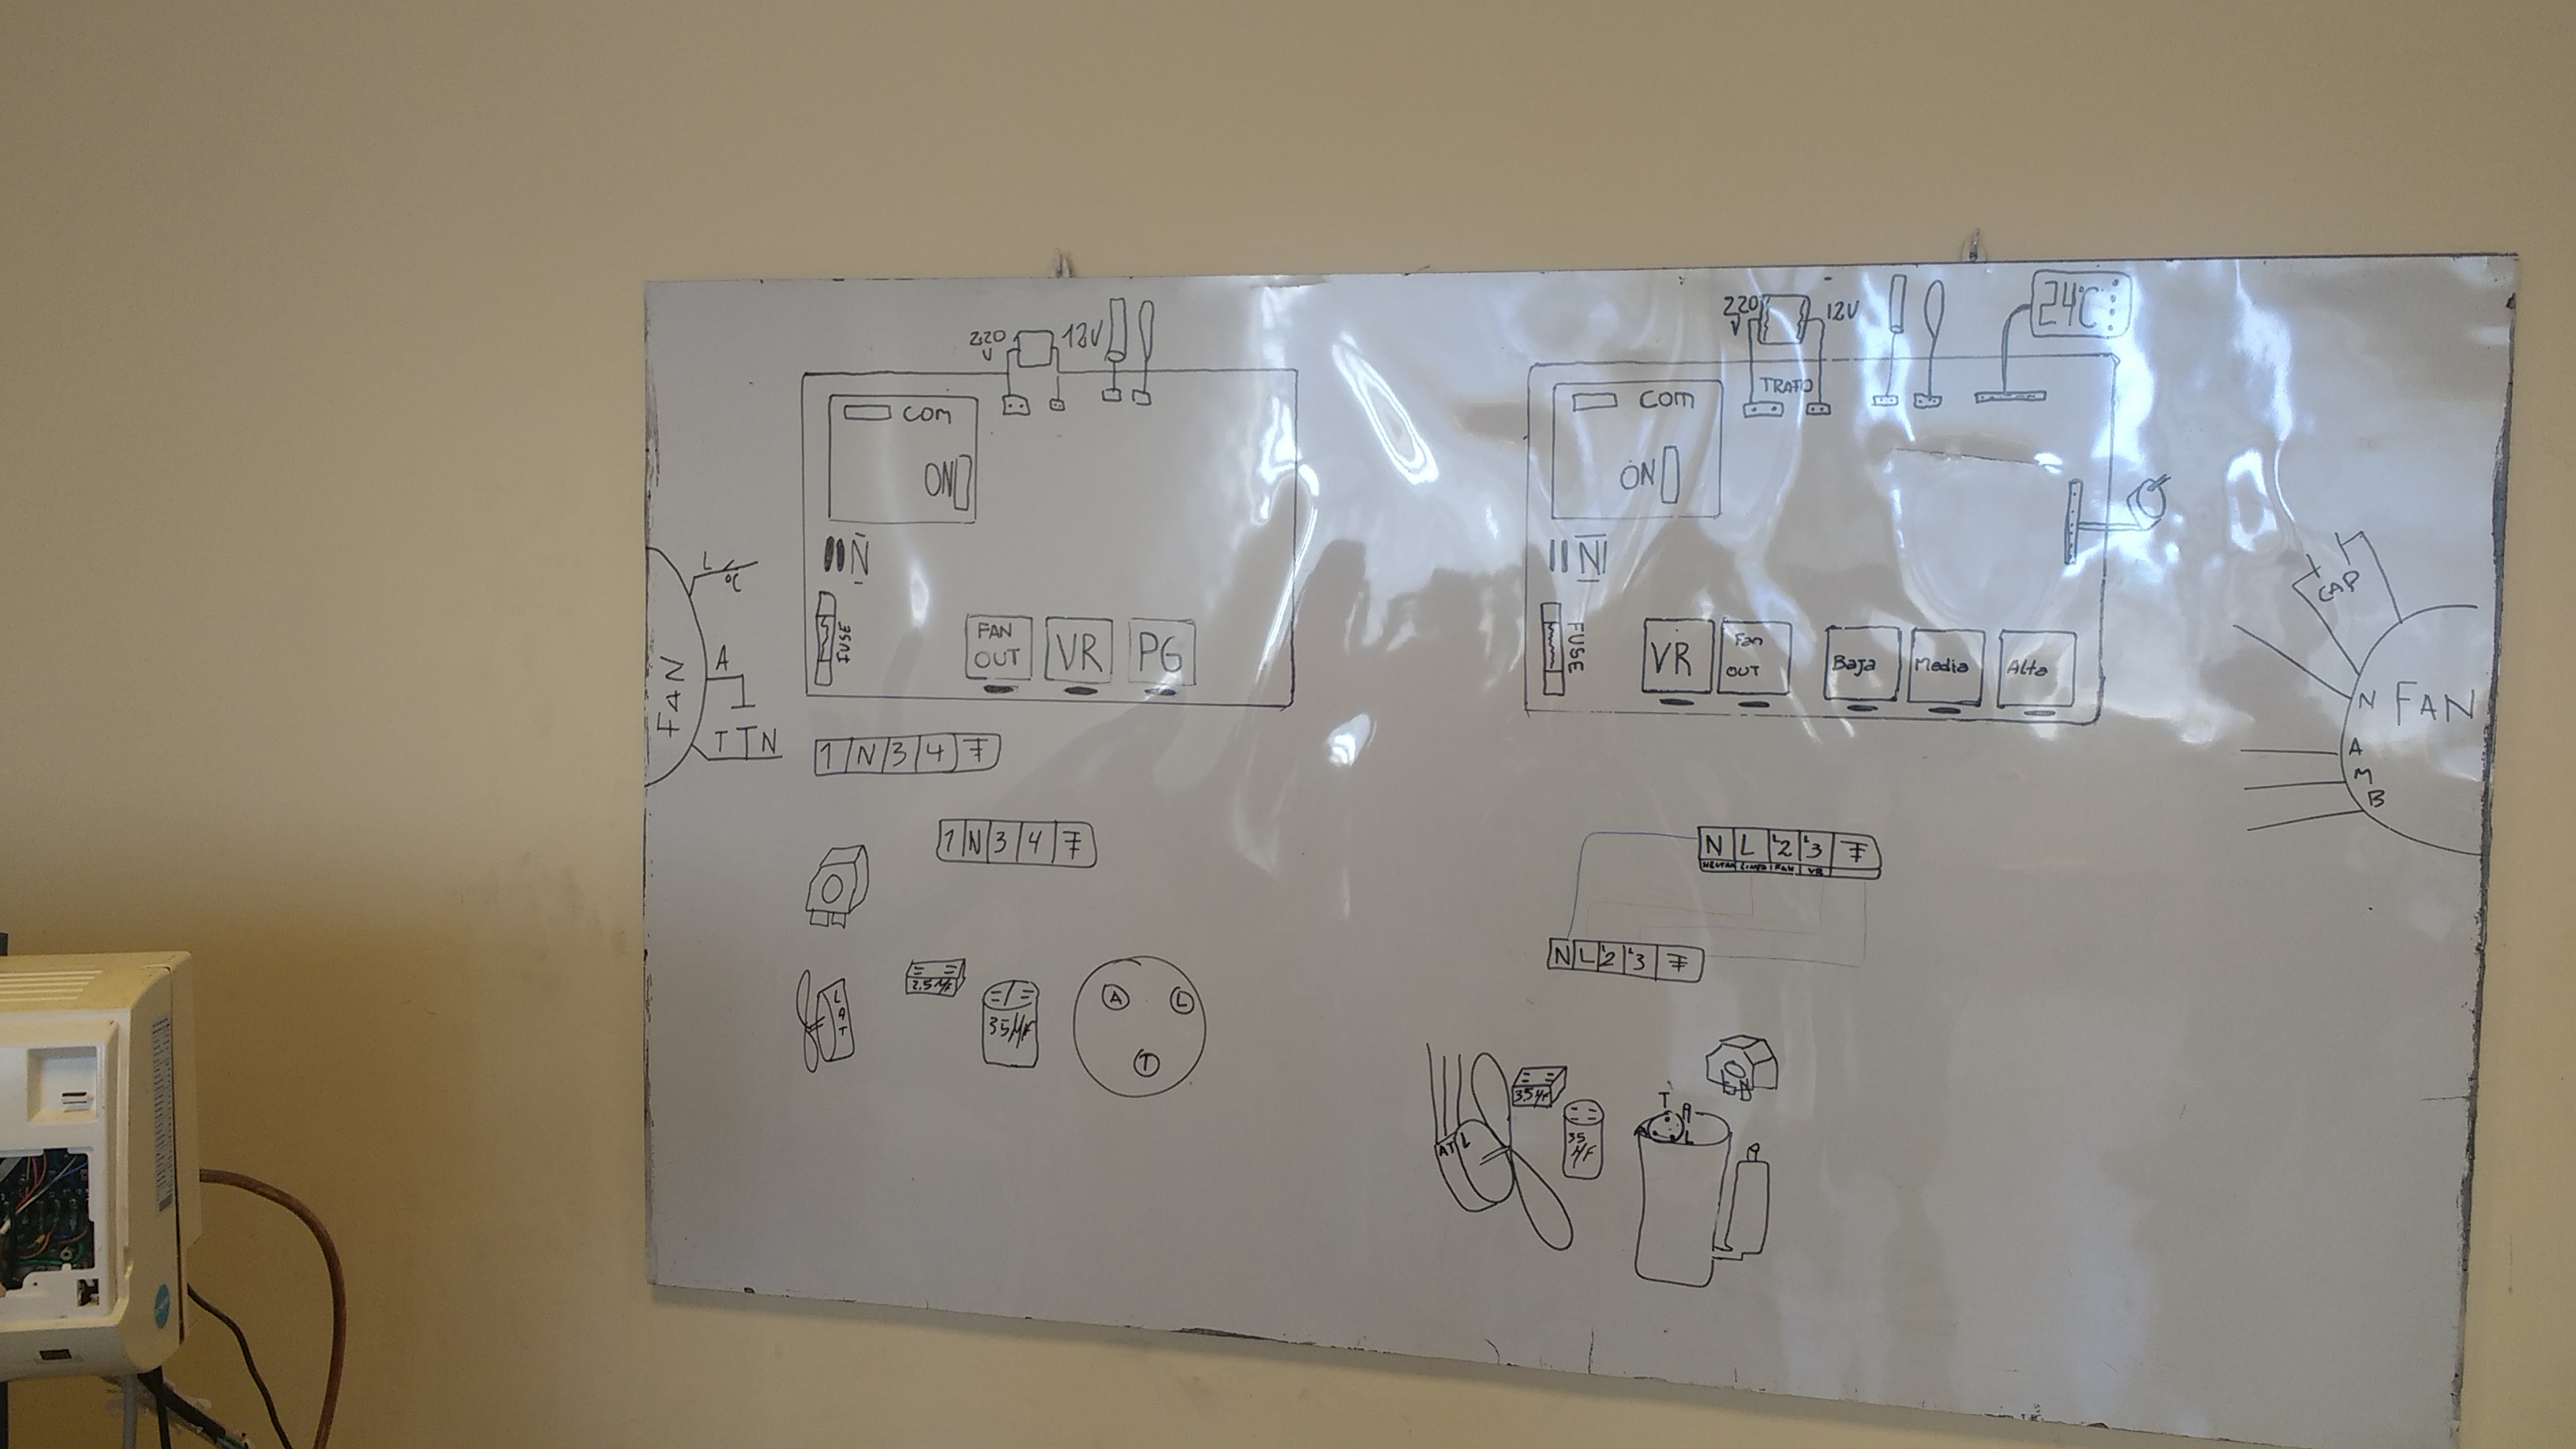 220 V 12V
COM
ON
N
FUSE
FAN OUT VR PG
L °C
A
T T N
FAN
1 N 3 4
1 N 3 4
LAT
2.5 MF
35 MF
A L
T
220 V 12V
24°C
TRAFO
COM
ON
N
FUSE
VR Fan OUT Baja Media Alta
CAP
N FAN
A
M
B
N L L2 L3
NEUTRO LINEA FAN VR
N L L2 L3
3.5 MF
35 MF
AT L
T
A L